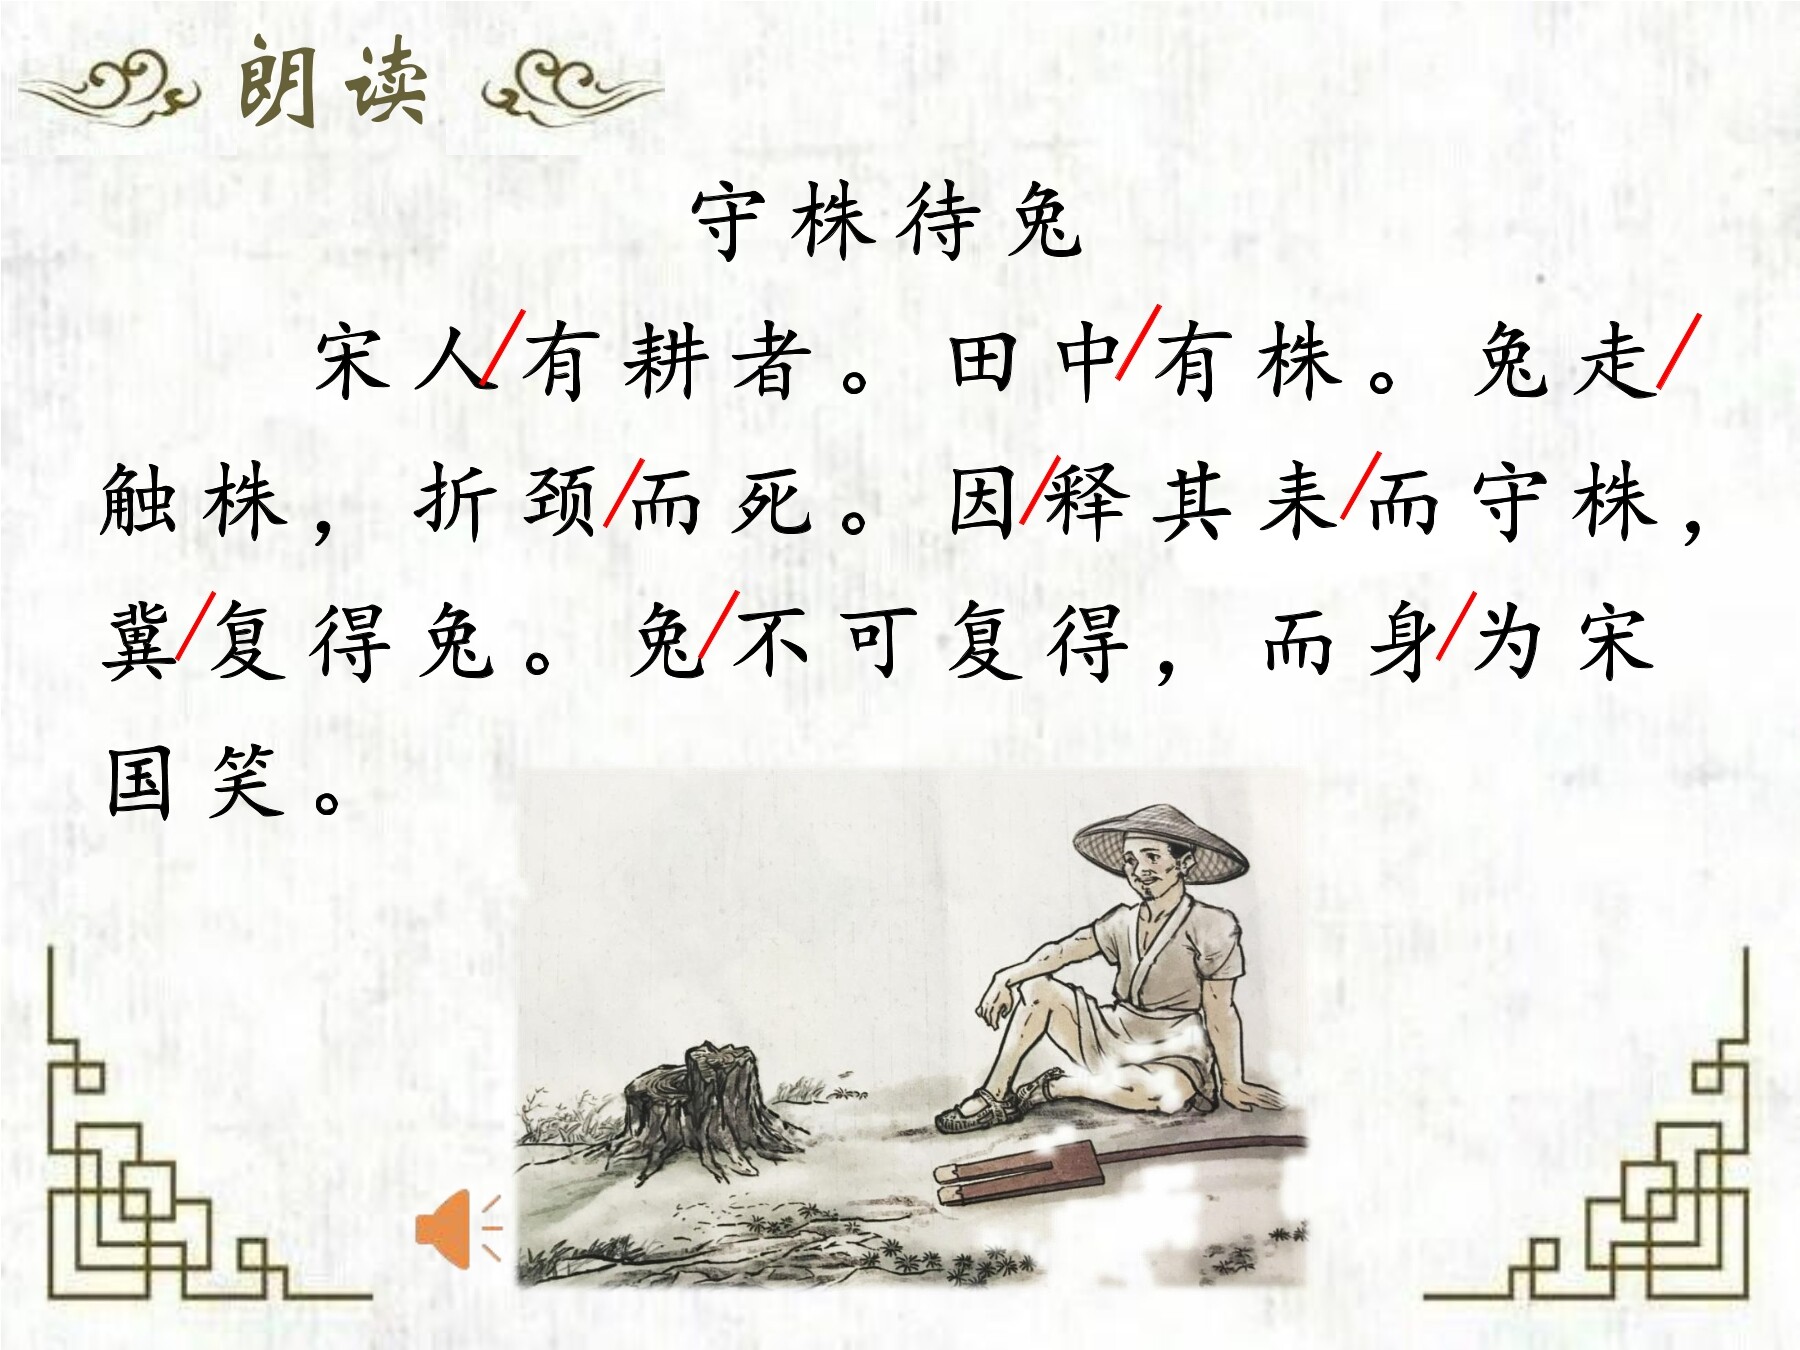 朗读
守株待兔
宋人/有耕者。田中/有株。兔走/
触株，折颈/而死。因/释其耒/而守株，
冀/复得兔。兔/不可复得，而身/为宋
国笑。